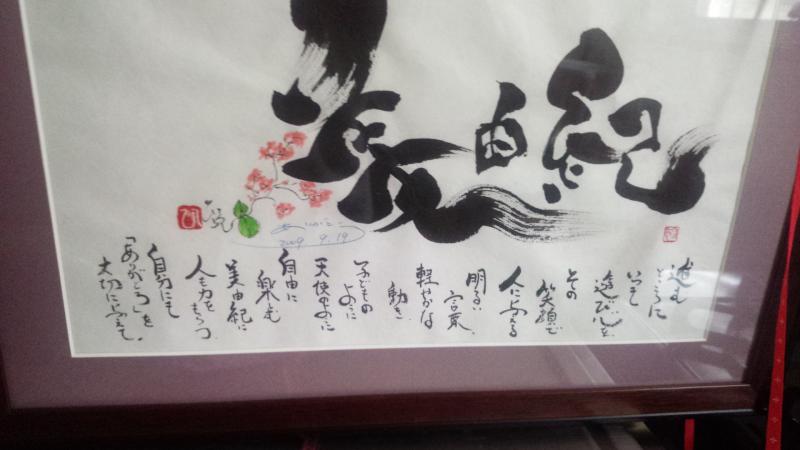 美由紀
進む
ところに
いつも
遊び心を
その
笑顔で
人に与える
明るい
言葉
軽やかな
動き
子どもの
ように
天使のように
自由に
楽しむ
美由紀に
人も力をもらう
自分にも
「ありがとう」を
大切に与えて
2009 9.19